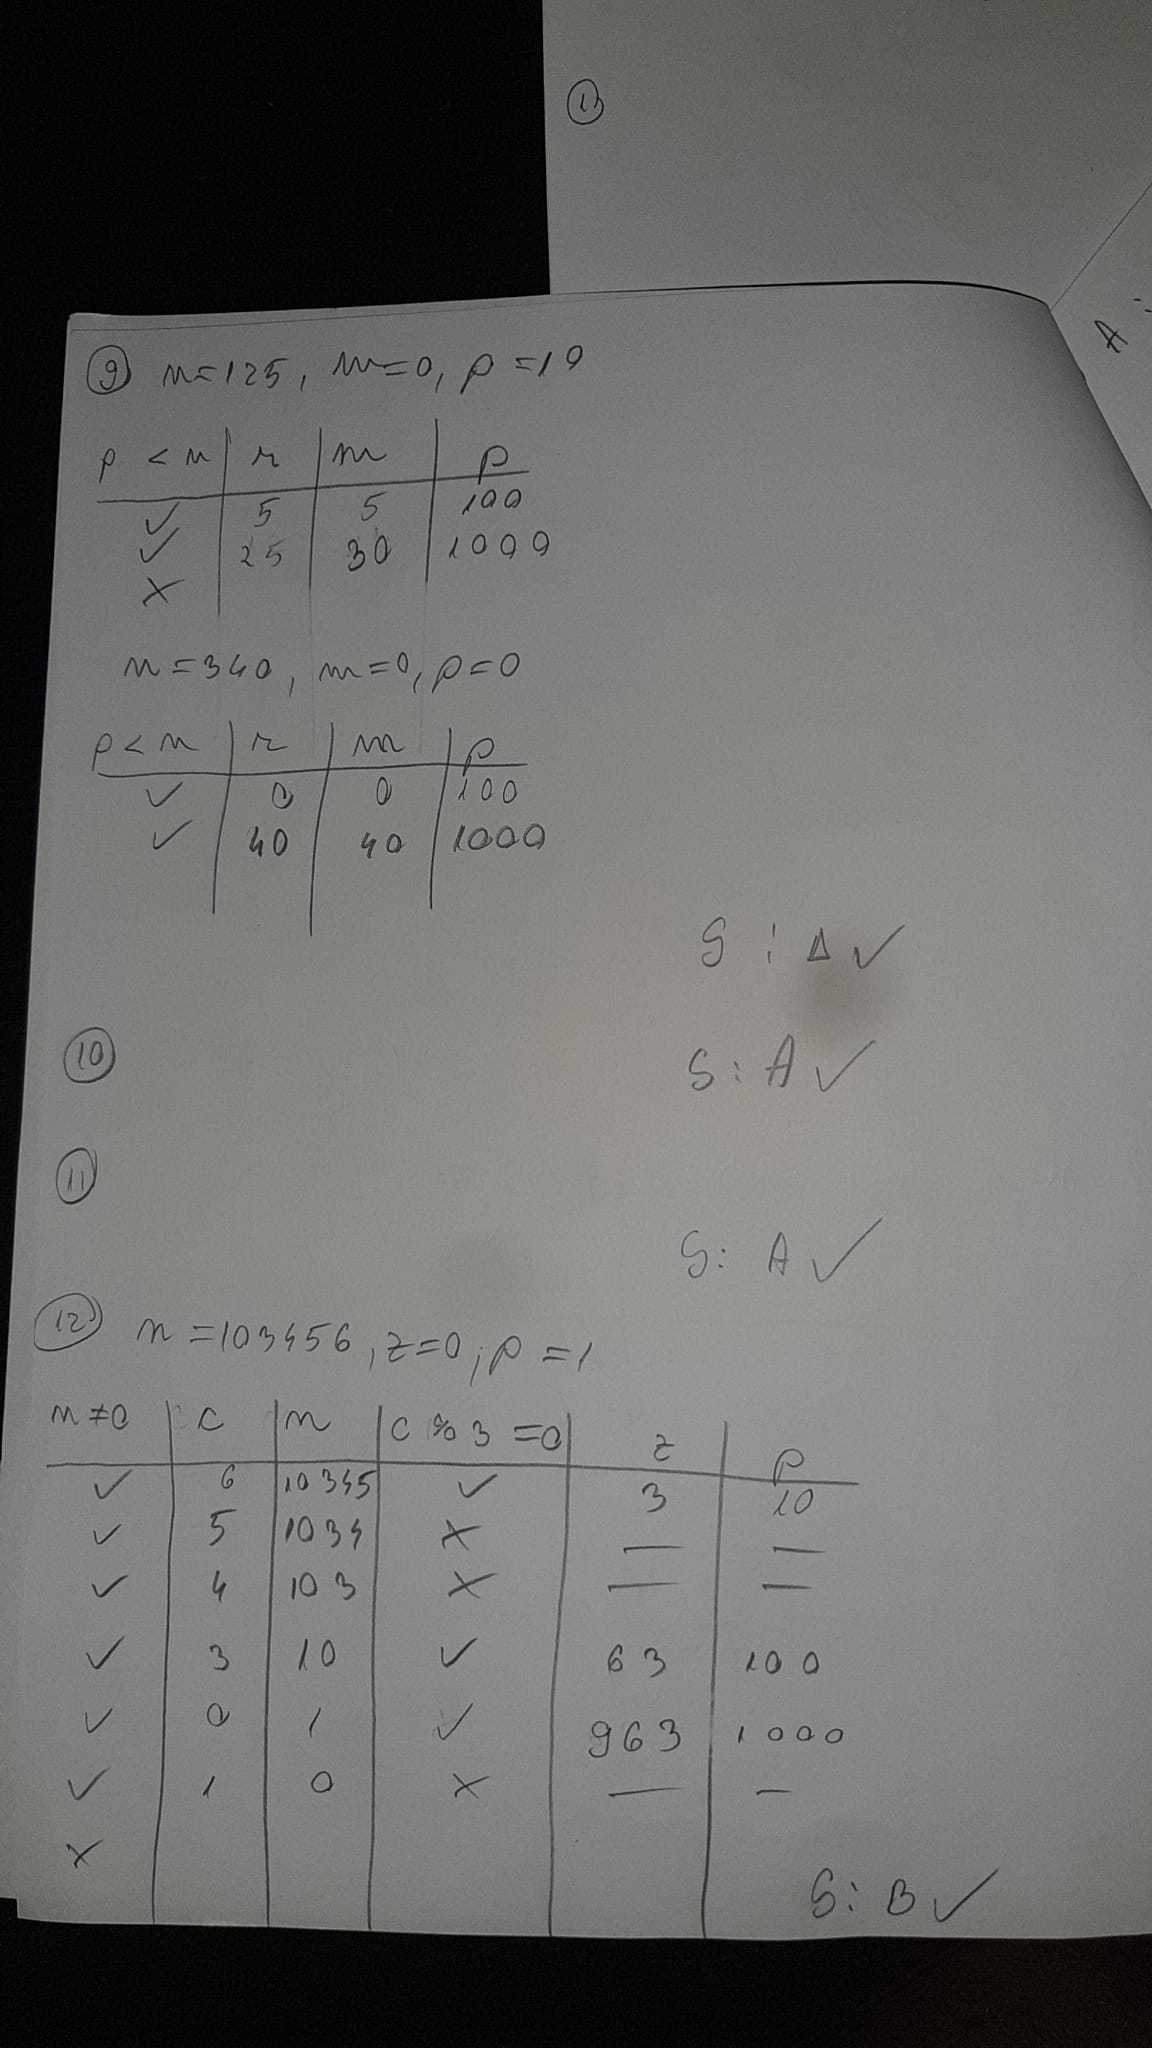 13
A :
9 n=125, m=0, p=10
p < n | r | m | p
✓ | 5 | 5 | 100
✓ | 25 | 30 | 1000
×
n=340, m=0, p=0
p<n | r | m | p
✓ | 0 | 0 | 100
✓ | 40 | 40 | 1000
S : A ✓
10
S: A ✓
11
S: A ✓
12 n=103456, z=0, p=1
n≠0 | c | n | c%3=0 | z | p
✓ | 6 | 10345 | ✓ | 3 | 10
✓ | 5 | 1034 | × | — | —
✓ | 4 | 103 | × | — | —
✓ | 3 | 10 | ✓ | 63 | 100
✓ | 0 | 1 | ✓ | 963 | 1000
✓ | 1 | 0 | × | — | —
×
S: B ✓